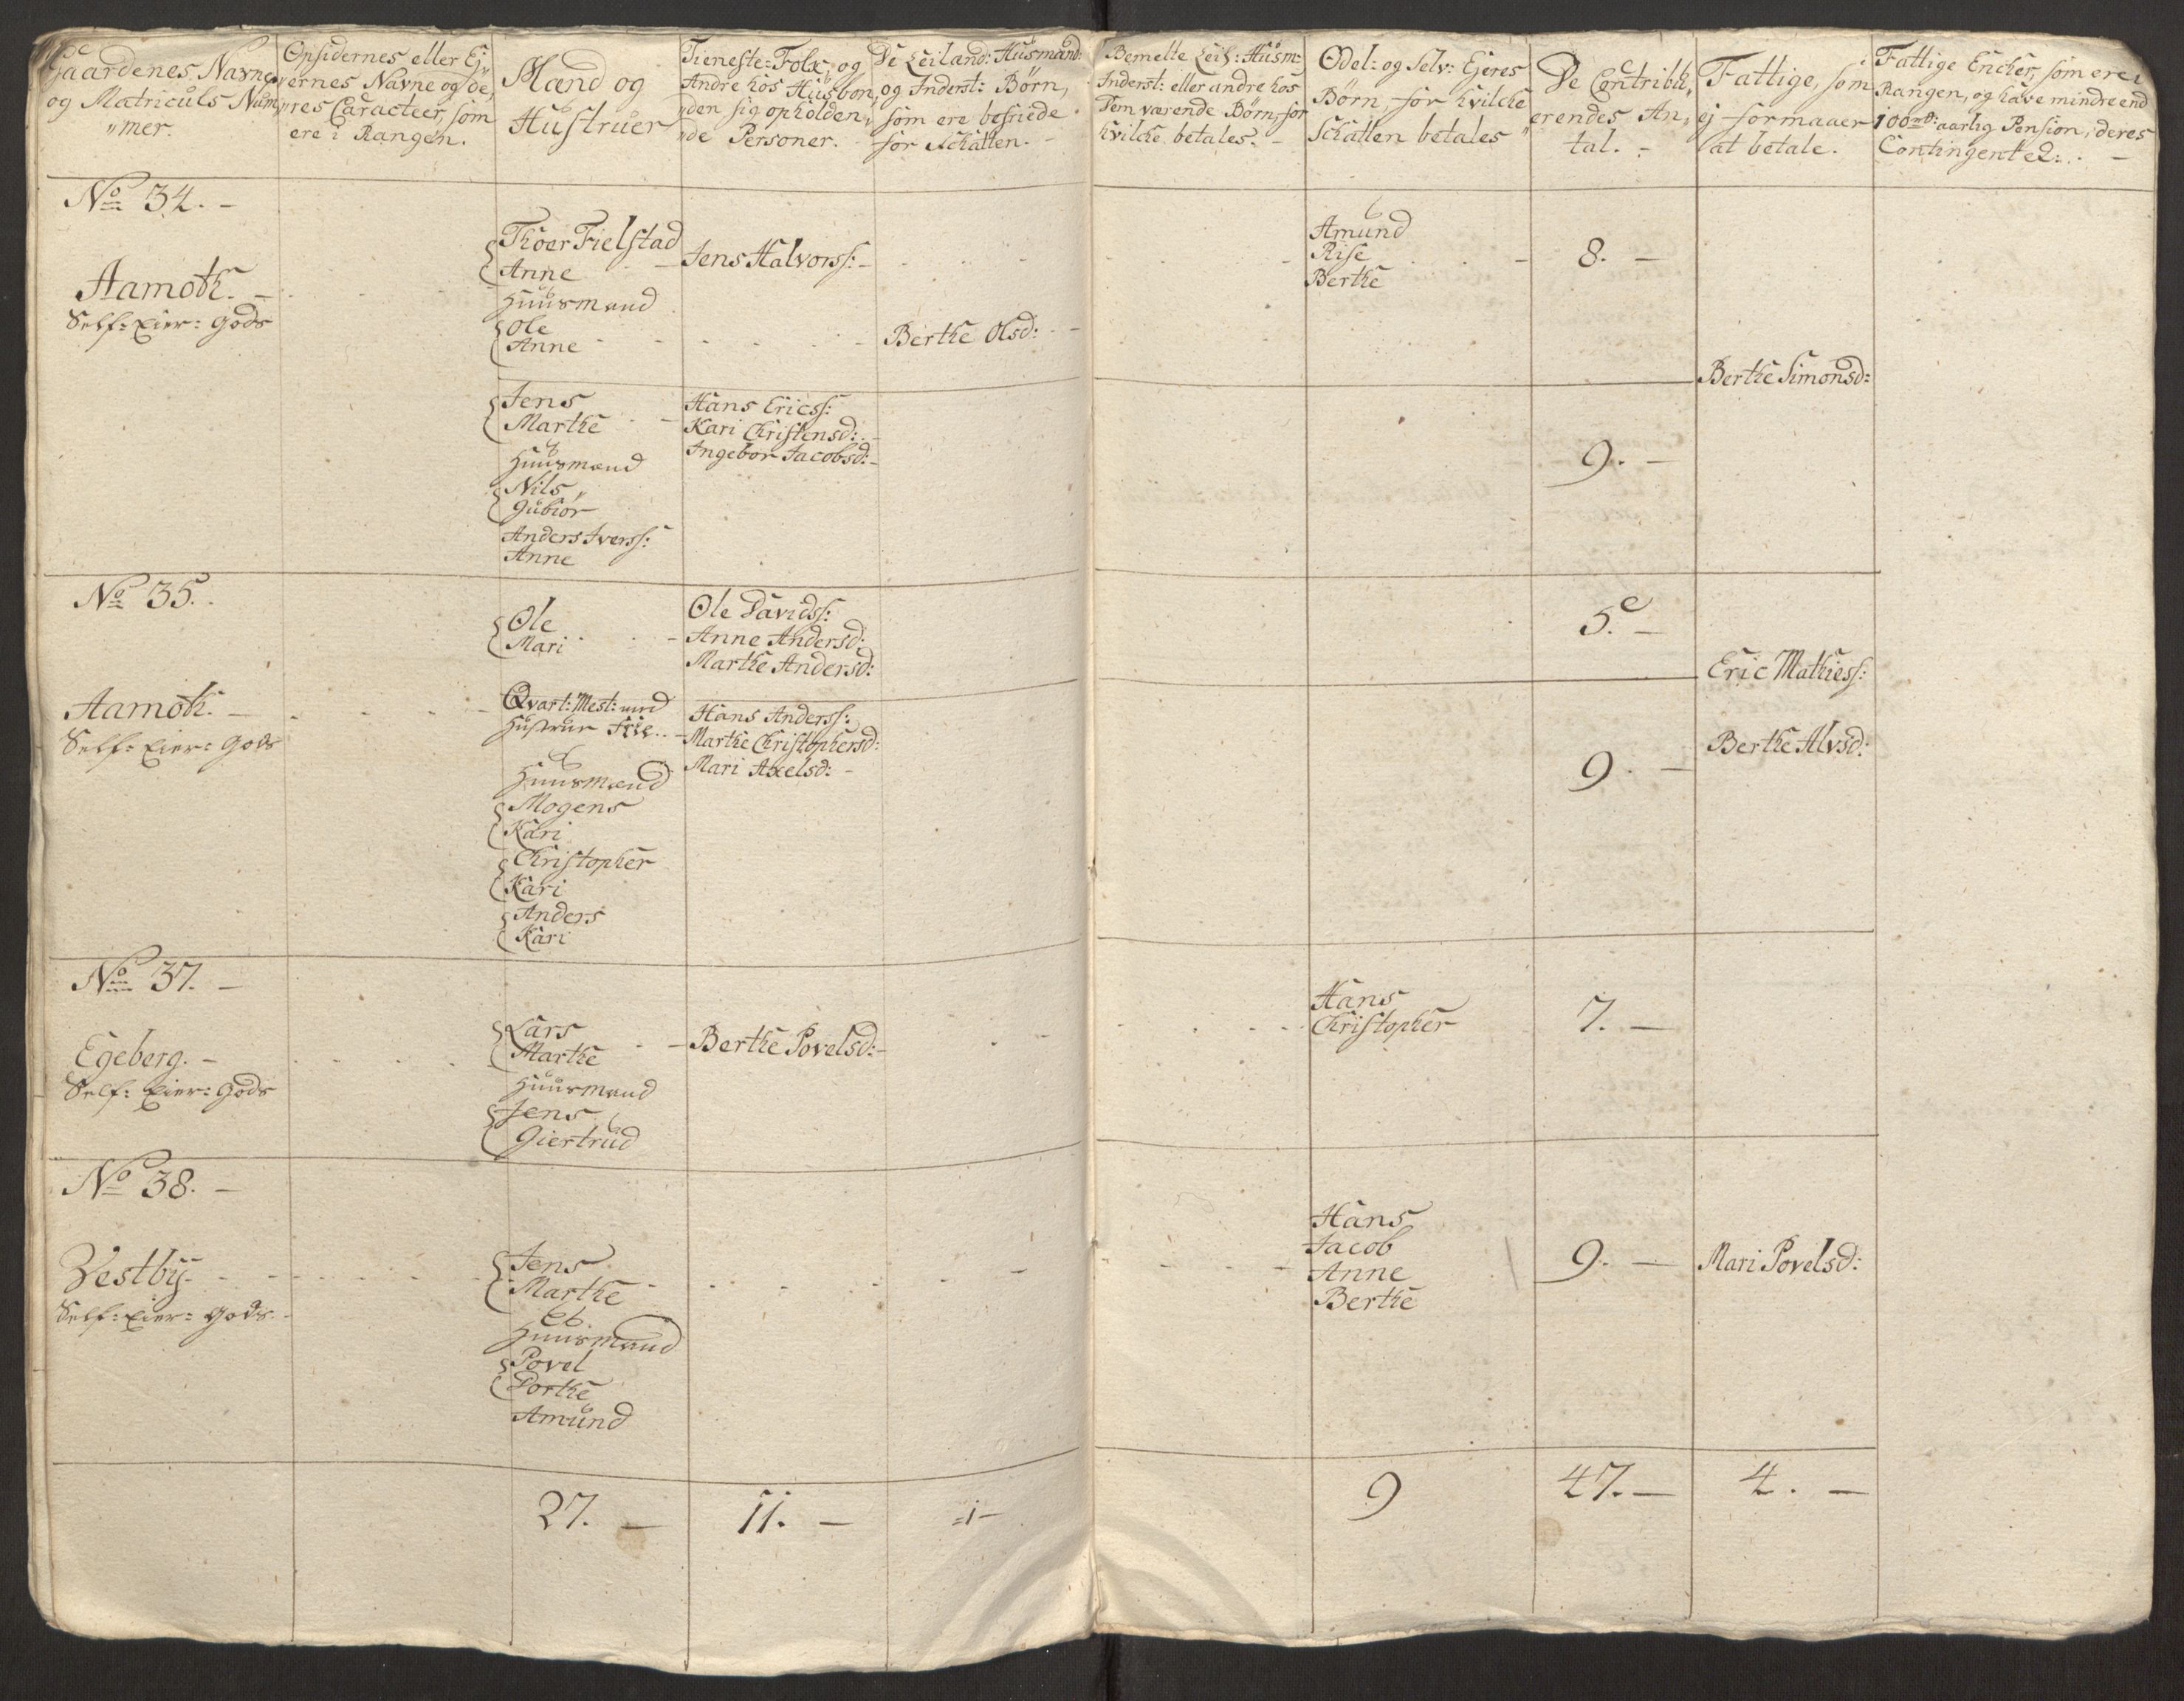 Gaardenes Navne
og Matriculs Num„
„mer.
Opsidernes eller Ej„
ernes Navne og de„
res Caracteer, som
ere i Rangen.
Mænd og
Hustruer
Tieneste-Folk, og
Andre hos Husbon„
„den sig opholden„
„de Personer.
De Leiland: Husmænd:
og Inderst: Börn,
som ere befriede
for Skatten. -
Bemelte Leil: Husm:
Inderst: eller andre hos
Dem værende Börn, for
hvilke betales. -
Odel- og Selv: Ejeres
Börn, for hvilcke
Skatten betales
De Contribu„
erendes An„
tal. -
Fattige, som
ej formaaer
at betale.
Fattige Encker, som ere i
Rangen, og have mindre end
100 rd: aarlig Pension, deres
Contingent
No 34. -
Aamoth. -
Self: Eier: Gods
Thoer Fielstad
Anne
Huusmænd
Ole
Anne
Jens Halvorss: -
Berthe Olsd: -
Amund
Rise
Berthe
8. -
Berthe Simonsd:
Jens
Marthe
Huusmænd
Nils
Gubior
Anders Iverss:
Anne
Hans Ericss:
Kari Christensd: -
Ingebor Jacobsd: -
9. -
No 35.
Aamoth. -
Self: Eier: Gods
Ole
Mari
Ole Davidss:
Anne Andersd:
Marthe Andersd:
5. -
Eric Mathiess:
Qvart: Mest: med
Hustrue
Huusmænd
Mogens
Kari
Christopher
Kari
Anders
Kari
Hans Anderss:
Marthe Christophersd:
Mari Axelsd: -
9. -
Berthe Alvsd:
No 37. -
Egeberg. -
Self: Eier: Gods
Lars
Marthe
Huusmænd
Jens
Giertrud
Berthe Povelsd: -
Hans
Christopher
7. -
No 38. -
Vestby. -
Self: Eier: Gods. -
Jens
Marthe
Huusmænd
Povel
Dorthe
Amund
Hans
Jacob
Anne
Berthe
9. -
Mari Povelsd:
27. -
11. -
=1-
9
47. -
4. -